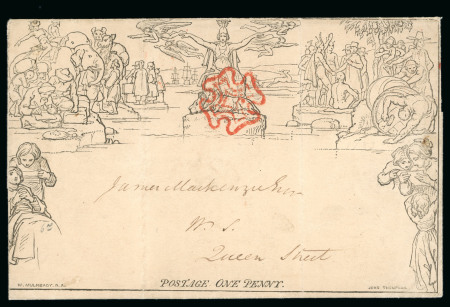 James Mackenzie Esqr
W. S.
Queen Street
POSTAGE ONE PENNY.
W. MULREADY. R.A.
JOHN THOMPSON